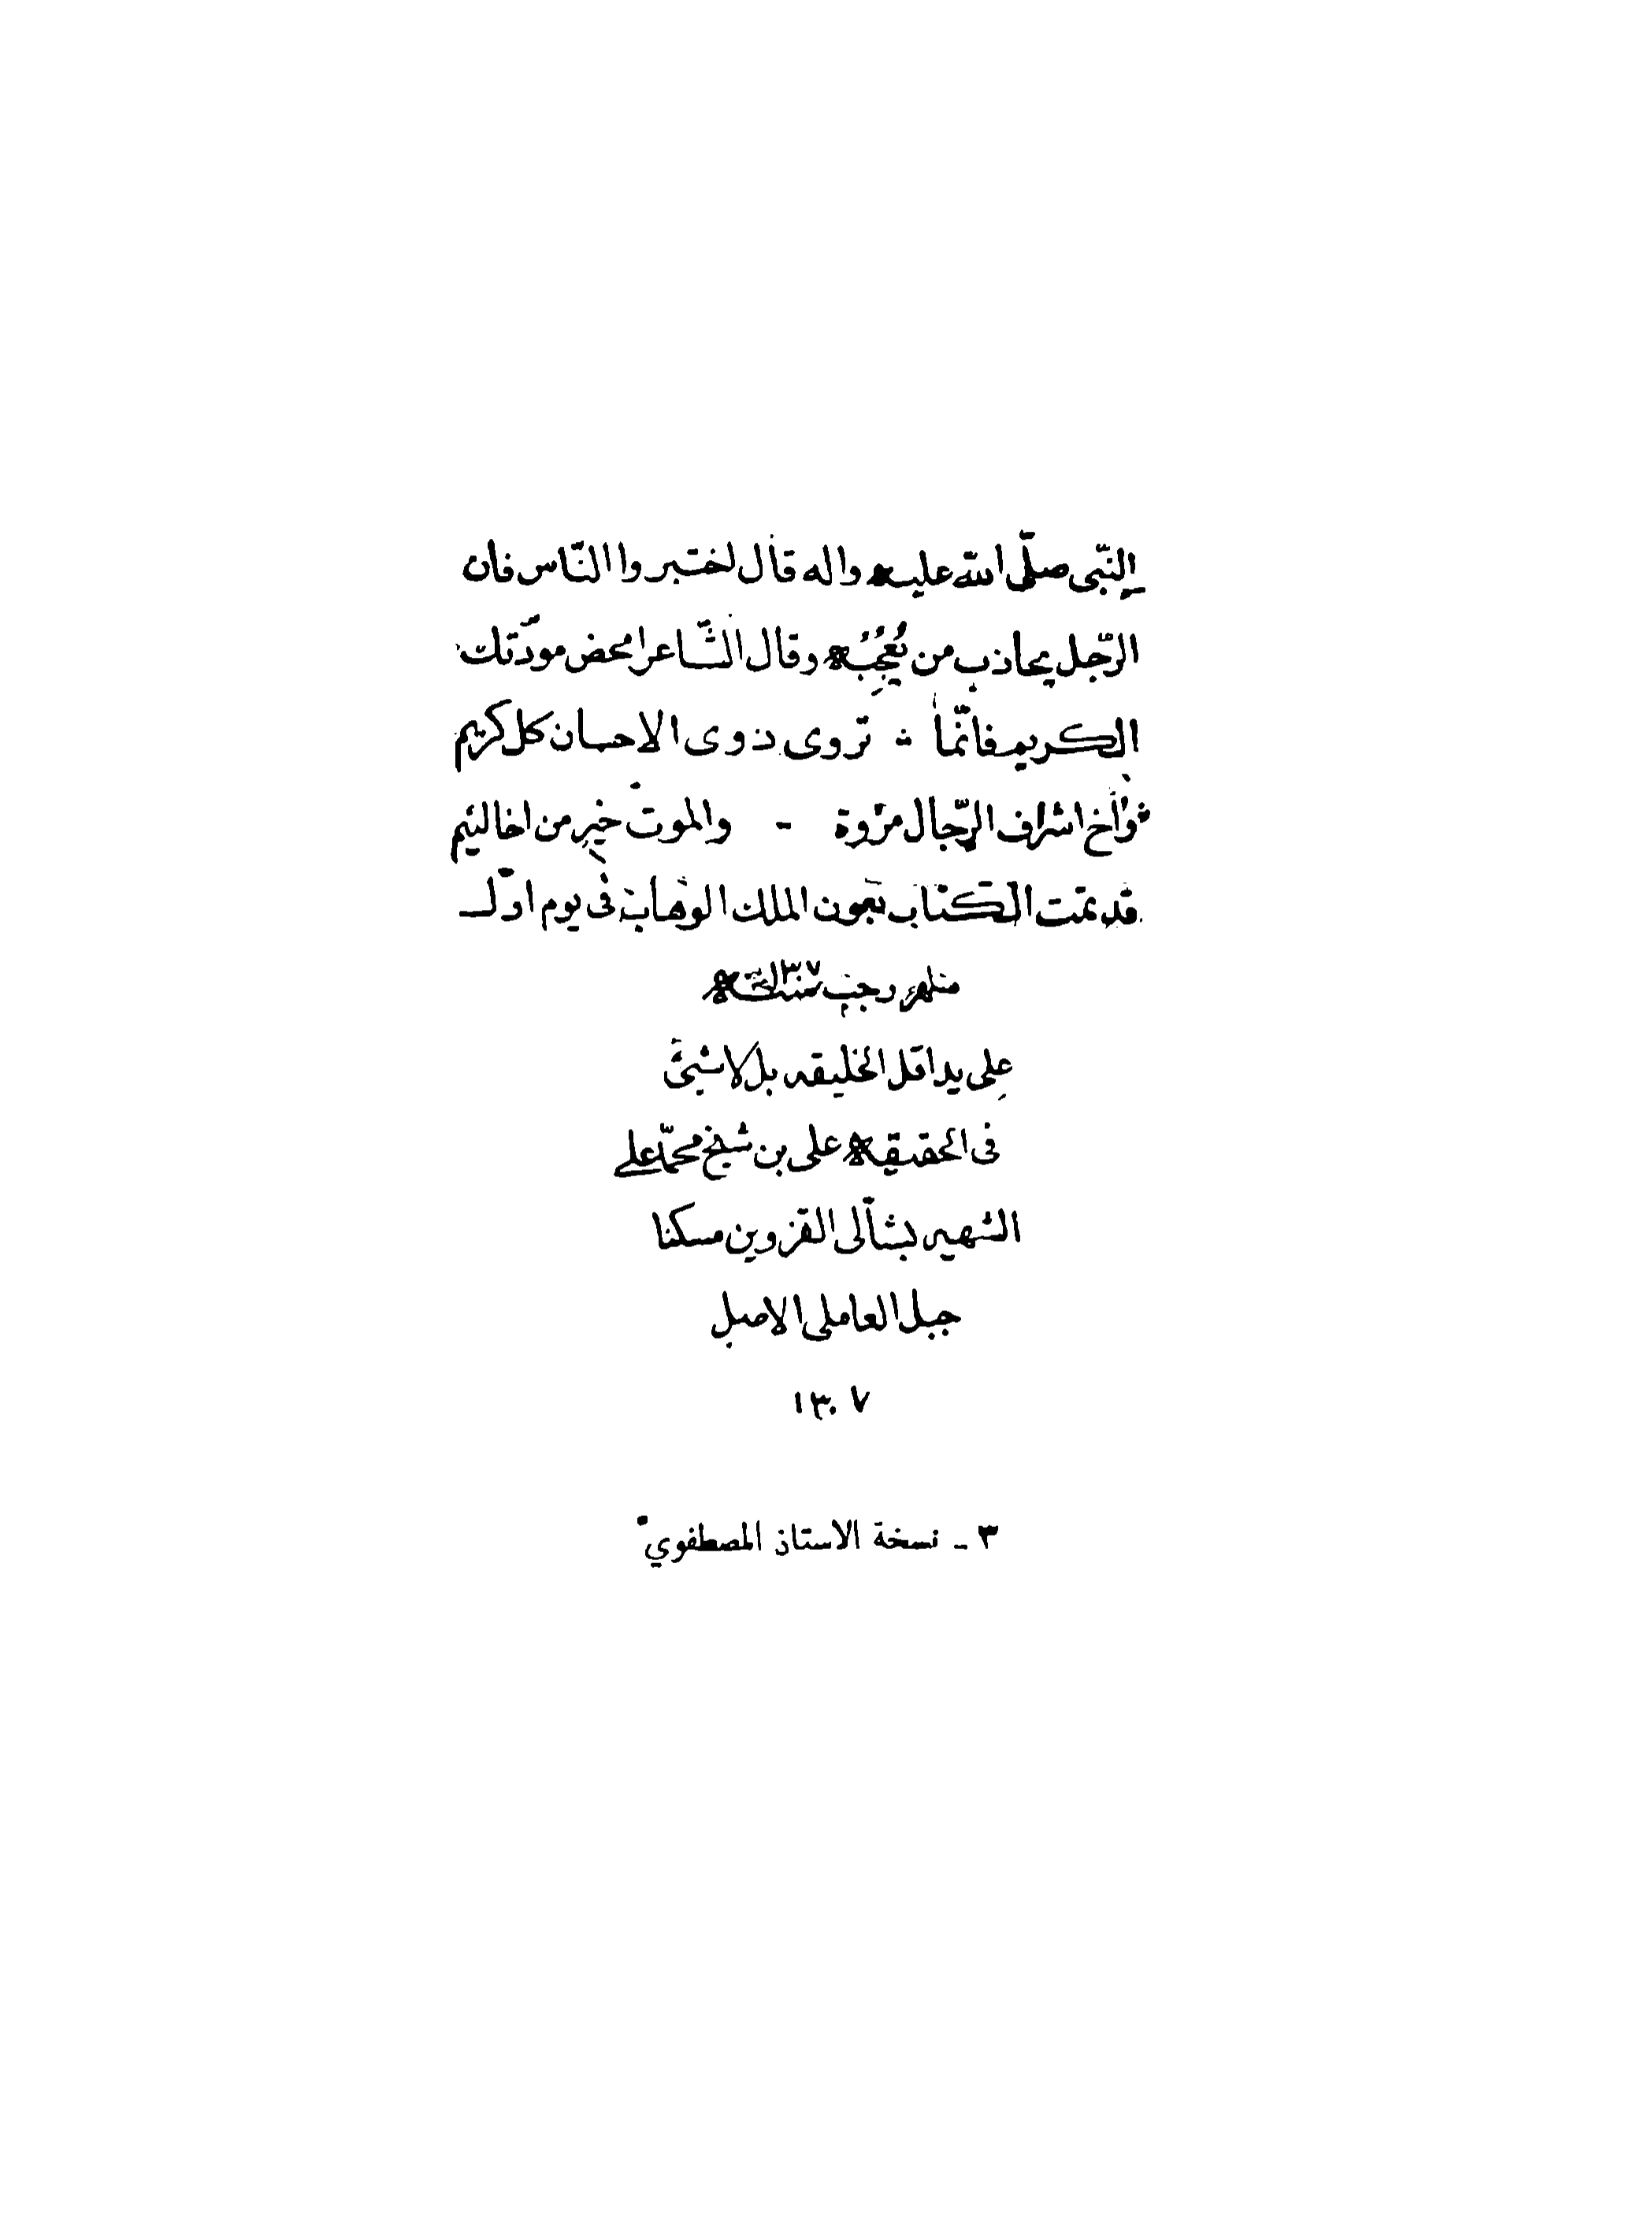 النّبى صلّى الله عليه واله قال اختبروا النّاس فان
الرّجل يحاذب من يُعْجِبُه وقال الشّاعر امحض مودّتك
الكريم فانّما ⁖ تروى ذوى الاحسان كل كريم
وواخ اشراف الرّجال مروة - والموت خير من اخا لئيم
قد تمت الكتاب بعون الملك الوهاب فى يوم اوّل
شهر رجب سنة ١٣٠٧
على يد اقل الخليقه بل لا شيئ
فى الحقيقه على بن شيخ محمّد على
الشهير القزوين مسكنا
جبل العاملى الاصل
١٣٠٧
٣ - نسخة الاستاذ المصطفوي